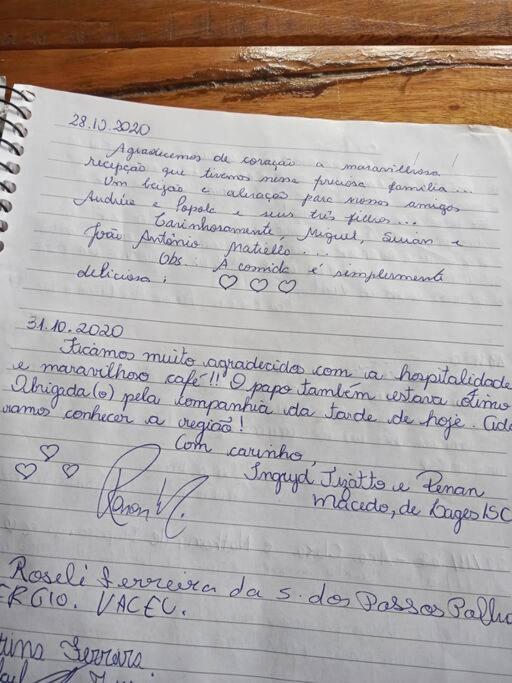 28.10.2020
Agradecemos de coração a maravilhosa
recepção que tivemos nessa preciosa família...
Um beijão e abração para nossos amigos
Andréia e Popola e seus três filhos...
Carinhosamente, Miguel, e
João Antônio Matiello...
Obs.: A comida é simplesmente
deliciosa;
31.10.2020
Ficámos muito agradecidos com a hospitalidade
e maravilhoso café!!! O papo também estava ótimo
Obrigada(o) pela companhia da tarde de hoje.
ramos conhecer a região!
Com carinho,
Ingryd e Renan
Macedo, de Lages/SC
Renan M.
Roseli Ferreira da S. dos Passos
VACEC.
Ferreira